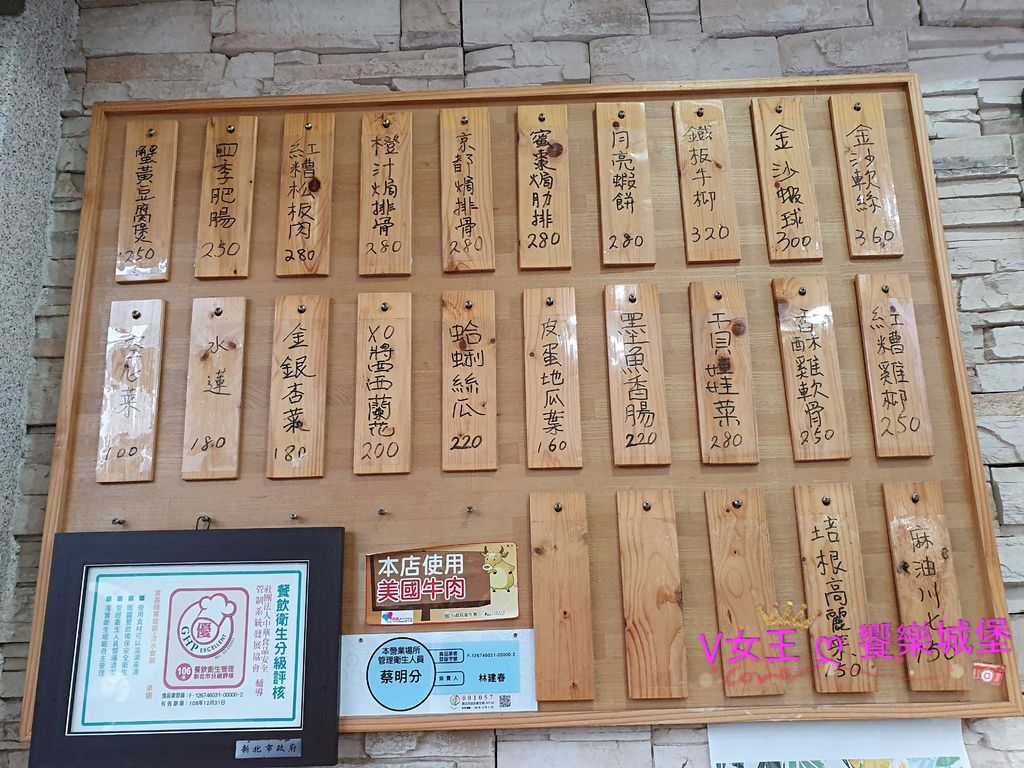 金沙軟絲 360
金沙蝦球 300
鐵板牛柳 320
月亮蝦餅 280
蜜棗焗肋排 280
京都焗排骨 280
橙汁焗排骨 280
紅糟松板肉 280
四季肥腸 250
蟹黃豆腐煲 250
紅糟雞柳 250
香酥雞軟骨 250
干貝娃娃菜 280
墨魚香腸 220
皮蛋地瓜葉 160
蛤蜊絲瓜 220
XO醬西蘭花 200
金銀杏菜 180
水蓮 180
菜 100
麻油川七 150
培根高麗菜 150
本店使用
美國牛肉
本營業場所
管理衛生人員
蔡明分
食品業者
登錄字號
F-126746031-00000-2
負責人
林建春
001057
餐飲衛生分級評核
社團法人中華食品安全
管制系統發展協會 輔導
優
GHP
EXCELLENT
106
餐飲衛生管理
新北市分級評核
食品業登錄：F-126746031-00000-2
有效期限：108年12月31日
承諾
■使用食材可以追溯來源
新北市政府
V女王 饗樂城堡